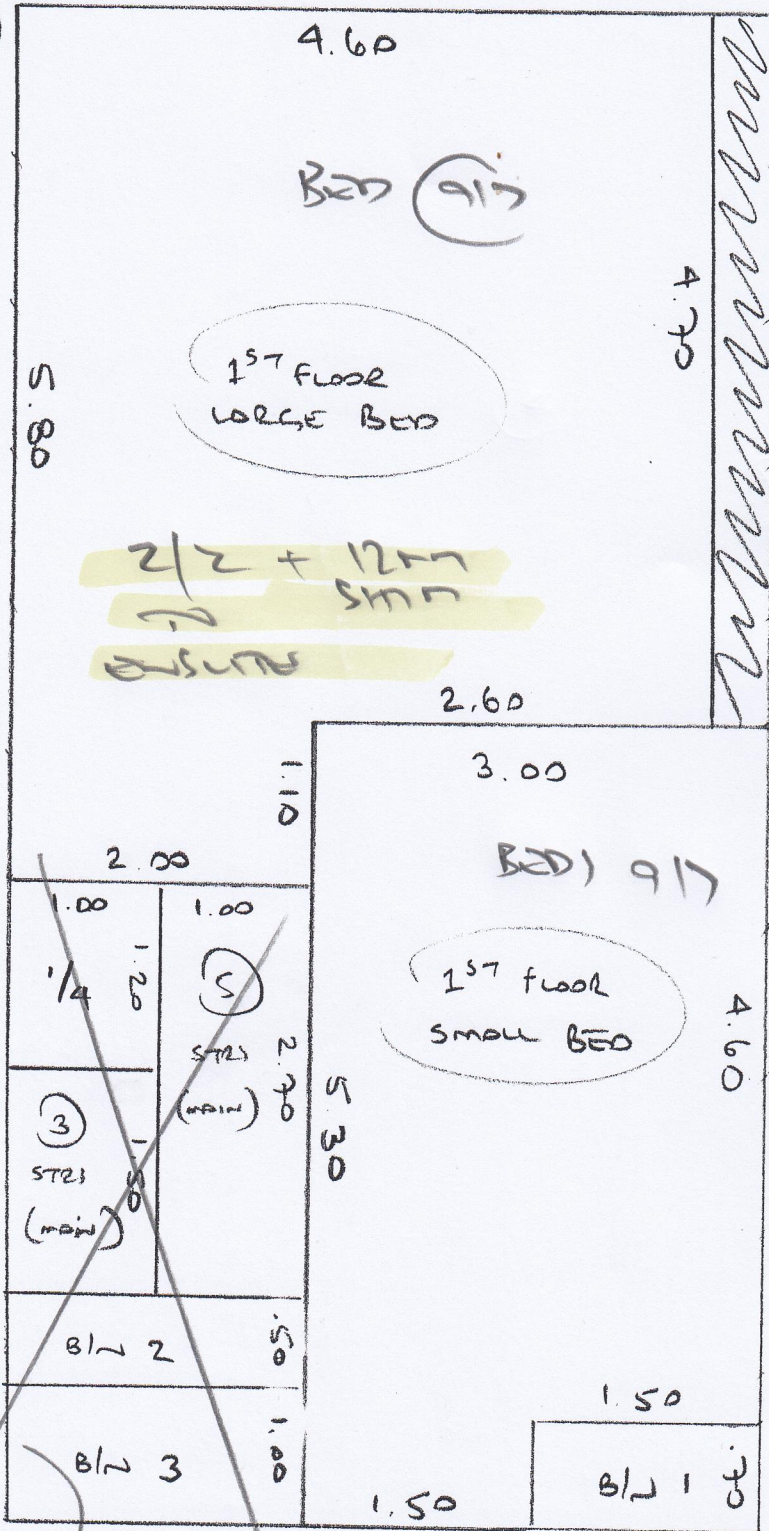 4.60
BED 917
4.70
1ST FLOOR
LARGE BED
5.80
2/2 + 12mm
5mm
ENSUITE
2.60
3.00
1.10
2.00
BED1 917
1.00
1.00
1/4
1.20
5
STRS
(MAIN)
2.70
1ST FLOOR
SMALL BED
4.60
3
STRS
(MAIN)
1.50
5.30
B/N 2
.50
1.50
B/N 3
1.00
1.50
B/N 1
.70